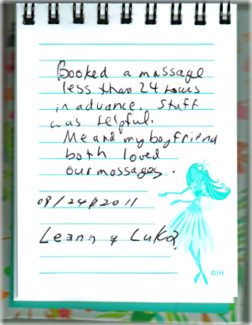 Booked a massage
less than 24 hours
in advance. Staff
was helpful.
Me and my boyfriend
both loved
our massages.
08/24/2011
Leann & Luka
©IH